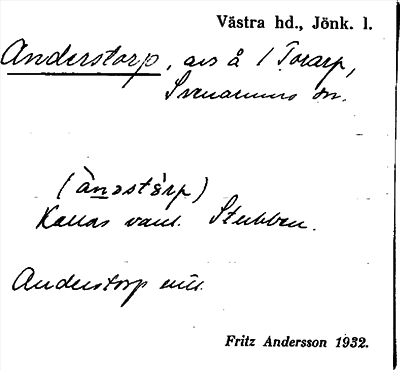 Västra hd., Jönk. l.
Anderstorp, avs å 1 Torarp,
Svenarums sn.
(ànəstàrp)
Kallas vanl. Stubben.
Anderstorp enl.
Fritz Andersson 1932.